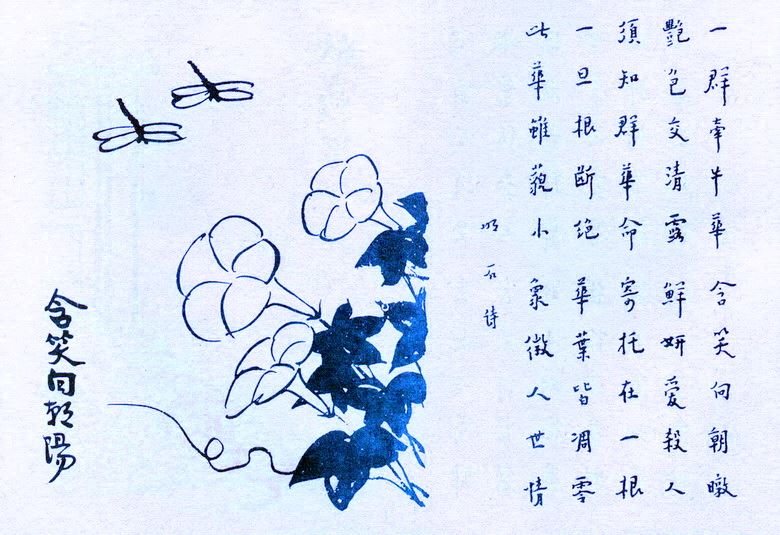 一群牽牛華含笑向朝暾
艷色交清露鮮妍愛殺人
須知群華命寄托在一根
一旦根斷絕華葉皆凋零
此華雖藐小象徵人世情
明石詩
含笑向朝陽